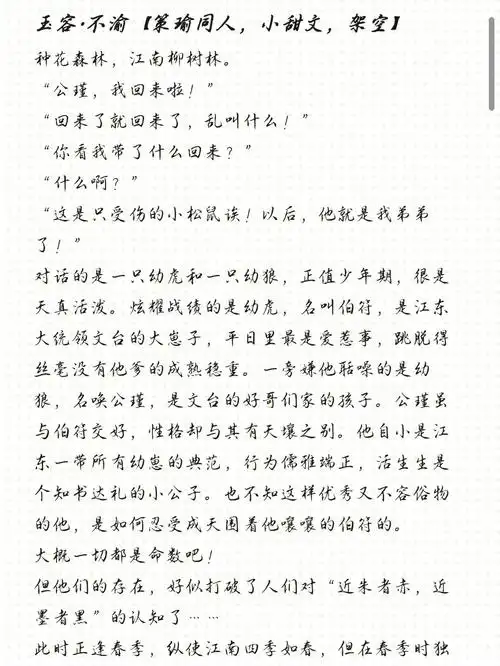 玉容·不渝【策瑜同人，小甜文，架空】
种花森林，江南柳树林。
“公瑾，我回来啦！”
“回来了就回来了，乱叫什么！”
“你看我带了什么回来？”
“什么啊？”
“这是只受伤的小松鼠诶！以后，他就是我弟弟
了！”
对话的是一只幼虎和一只幼狼，正值少年期，很是
天真活泼。炫耀战绩的是幼虎，名叫伯符，是江东
大统领文台的大崽子，平日里最是爱惹事，跳脱得
丝毫没有他爹的成熟稳重。一旁嫌他聒噪的是幼
狼，名唤公瑾，是文台的好哥们家的孩子。公瑾虽
与伯符交好，性格却与其有天壤之别。他自小是江
东一带所有幼崽的典范，行为儒雅端正，活生生是
个知书达礼的小公子。也不知这样优秀又不容俗物
的他，是如何忍受成天围着他嚷嚷的伯符的。
大概一切都是命数吧！
但他们的存在，好似打破了人们对“近朱者赤，近
墨者黑”的认知了……
此时正逢春季，纵使江南四季如春，但在春季时独